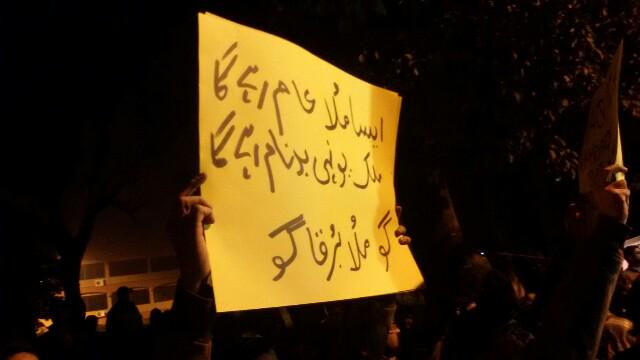 ایسا مُلّا عام رہے گا
ملک یونہی بدنام رہے گا
گو مُلّا بُرقا گو